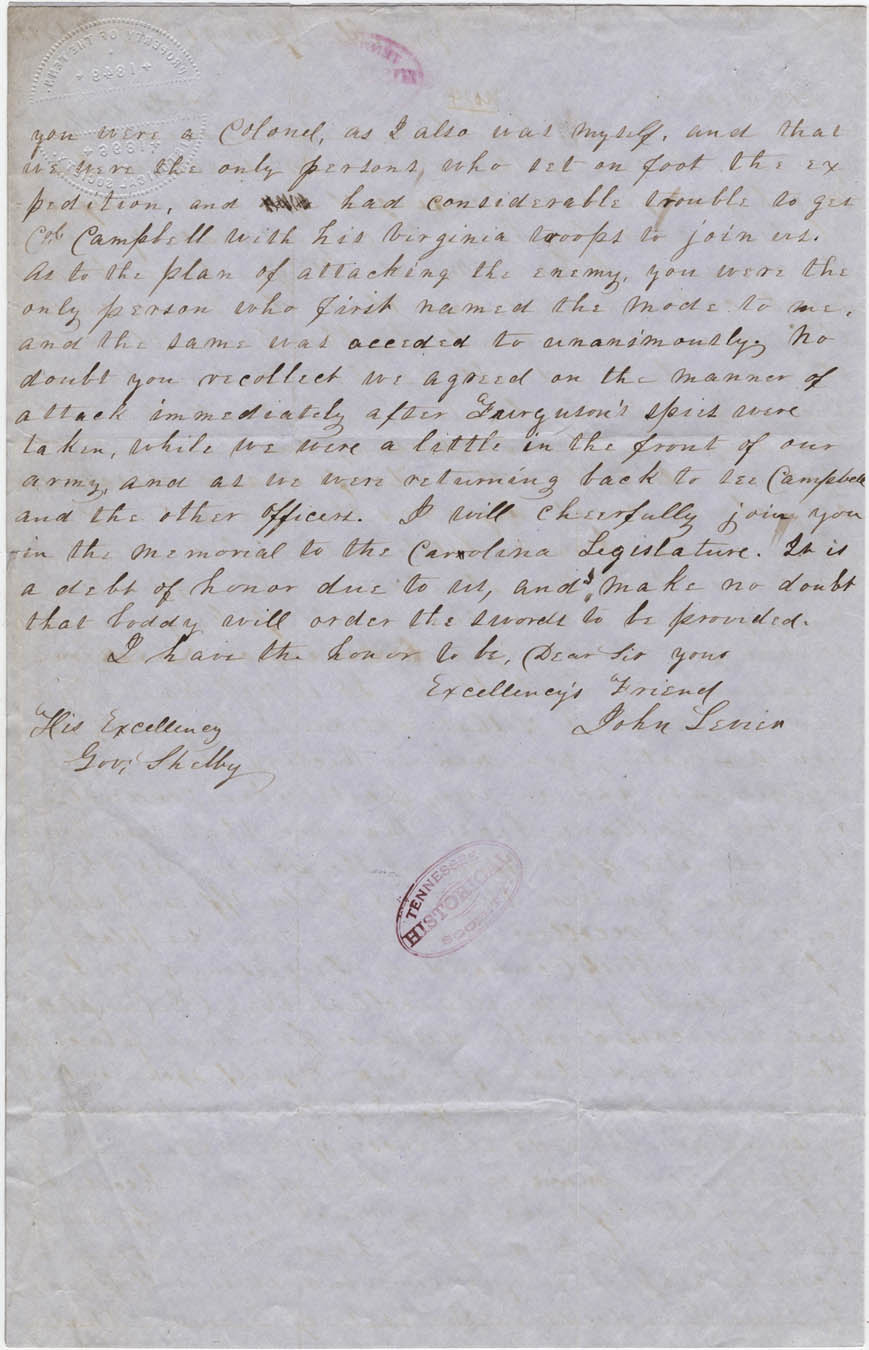 PROPERTY OF THE TENN.
1849
you were a Colonel, as I also was myself, and that
we were the only persons, who set on foot the ex
pedition, and had considerable trouble to get
Col Campbell with his Virginia troops to join us.
As to the plan of attacking the enemy, you were the
only person who first named the mode to me,
and the same was acceded to unanimously. No
doubt you recollect we agreed on the manner of
attack immediately after Furguson's spies were
taken, while we were a little in the front of our
army, and as we were returning back to see Campbell
and the other officers. I will cheerfully join you
in the memorial to the Carolina Legislature. It is
a debt of honor due to us, and I make no doubt
that boddy will order the swords to be provided.
I have the honor to be, Dear Sir your
Excellency's Friend
John Sevier
His Excellency
Gov; Shelby
TENNESSEE
HISTORICAL
SOCIETY